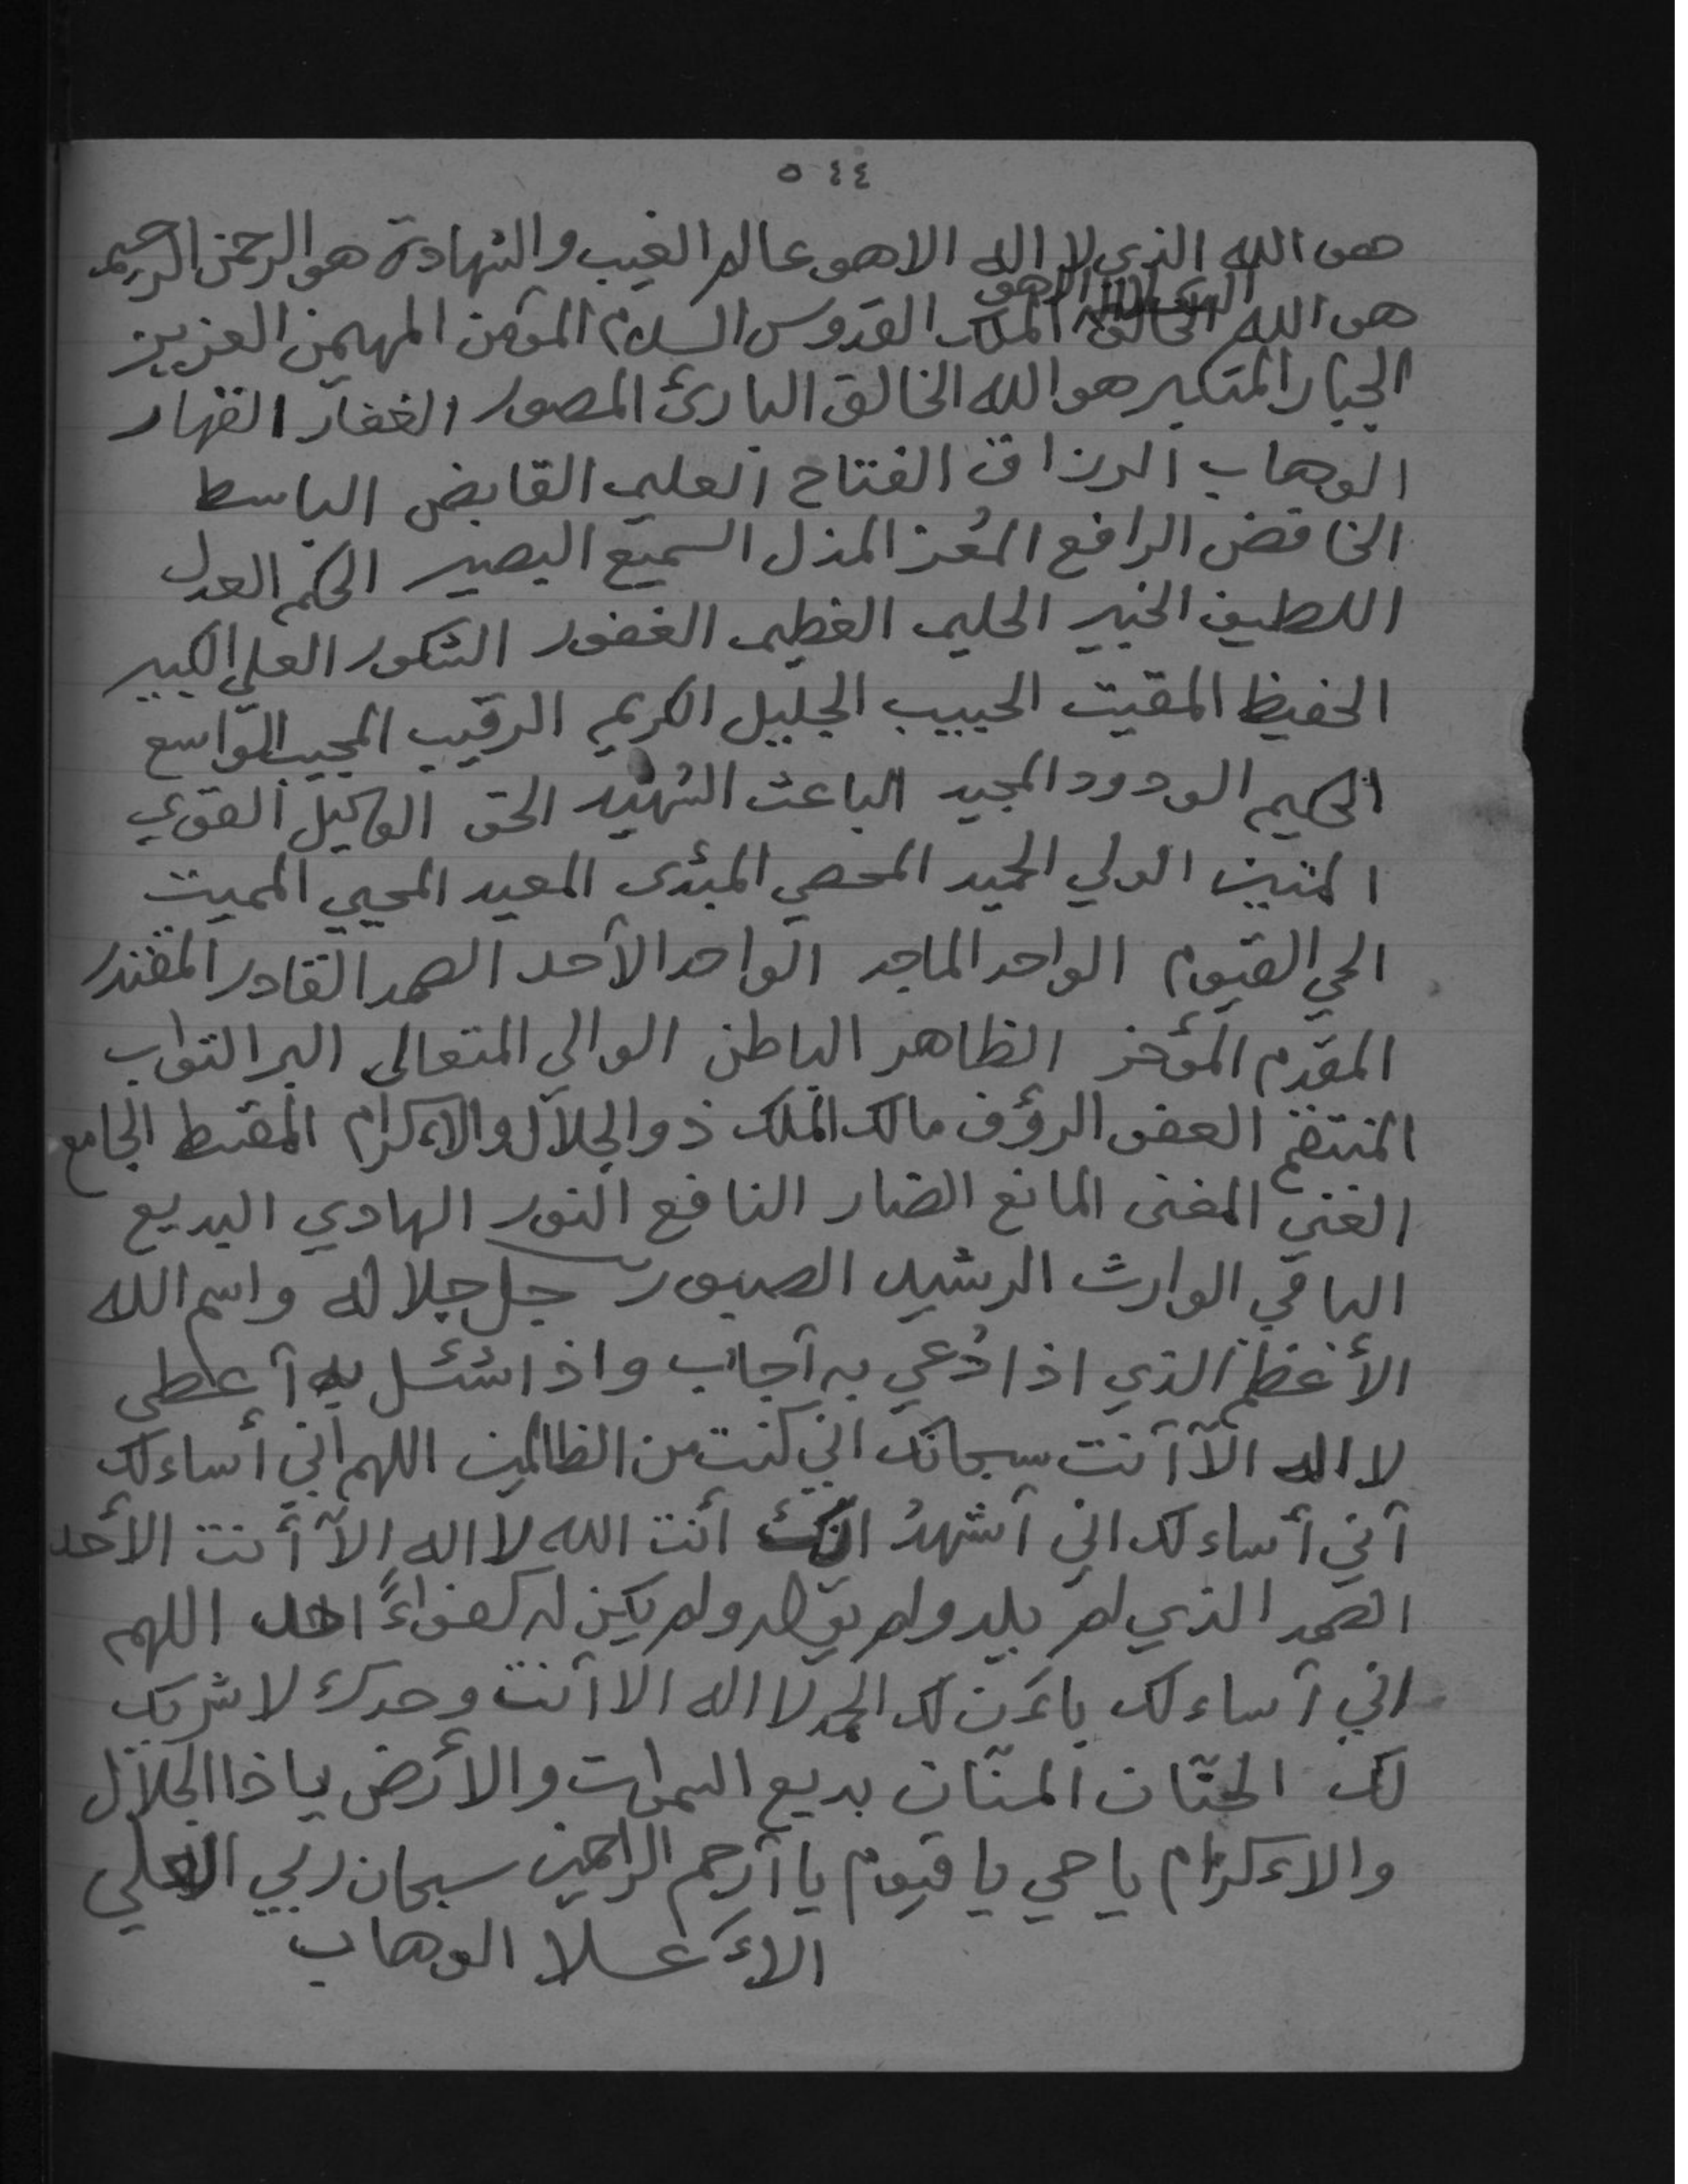 ٥٤٤
هو الله الذي لا اله الا هو عالم الغيب والشهادة هو الرحمن الرحيم
الذي لا اله الا هو
هو الله الملك القدوس السلام المؤمن المهيمن العزيز
الجبار المتكبر هو الله الخالق البارئ المصور الغفار القهار
الوهاب الرزاق الفتاح العليم القابض الباسط
الخافض الرافع المُعز المذل السميع البصير الحكم العدل
اللطيف الخبير الحليم العظيم الغفور الشكور العلي الكبير
الحفيظ المقيت الحبيب الجليل الكريم الرقيب المجيب الواسع
الحكيم الودود المجيد الباعث الشهيد الحق الوكيل القوي
المتين الولي الحميد المحصي المبئدى المعيد المحيي المميت
الحي القيوم الواحد الماجد الواحد الأحد الصمد القادر المقتدر
المقدم المؤخر الظاهر الباطن الوالي المتعالى البر التواب
المنتقم العفو الرؤف مالك الملك ذو الجلال والاءكرام المقسط الجامع
الغني المغنى المانع الضار النافع النور الهادي البديع
الباقي الوارث الرشيد الصبور جل جلاله واسم الله
الأعظم الذي اذا دُعي به آجاب واذا سُئل به آعطى
لا اله الآ آنت سبحانك اني كنت من الظالمين اللهم اني أساءلك
آني أساءلك اني آشهدُ انك أنت الله لا اله الآ أنت الأحد
الصمد الذي لم يلد ولم يولد ولم يكن له كفواءً احد اللهم
اني آساءلك باءَن لك الحمد لا اله الا آنت وحدك لا شريك
لك الحنّان المنّان بديع السموات والأرض يا ذا الجلال
والاءكرام يا حي يا قيوم يا آرحم الراحمين سبحان ربي العلي
الاءَعلا الوهاب